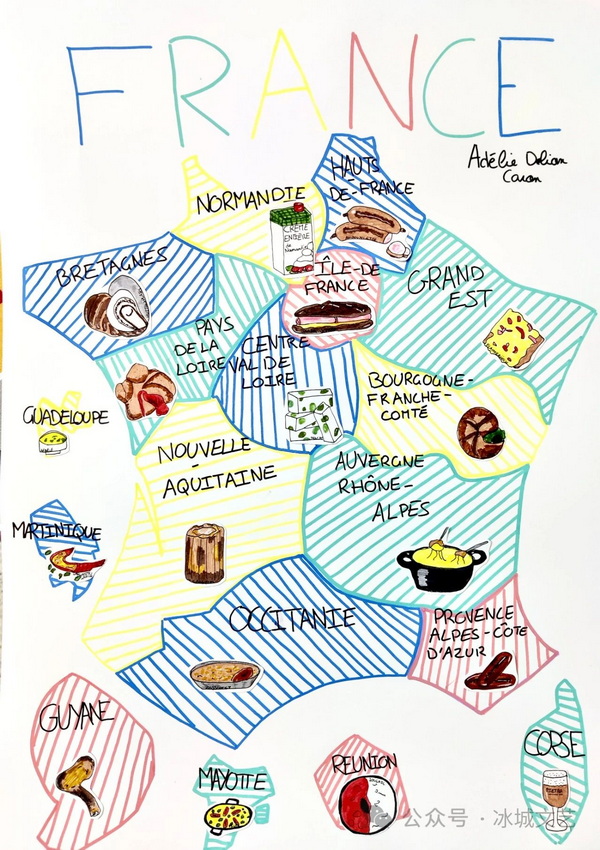 FRANCE
Adélie Dolian
Caron
HAUTS
DE-FRANCE
NORMANDIE
CRÈME
ENTIÈRE
de Normandie
ÎLE-DE
FRANCE
BRETAGNES
GRAND
EST
PAYS
DE LA
LOIRE
CENTRE
VAL DE
LOIRE
BOURGOGNE-
FRANCHE-
COMTÉ
GUADELOUPE
NOUVELLE
-
AQUITAINE
AUVERGNE
RHÔNE-
ALPES
MARTINIQUE
OCCITANIE
PROVENCE
ALPES-CÔTE
D'AZUR
GUYANE
MAYOTTE
REUNION
CORSE
公众号·冰城文艺